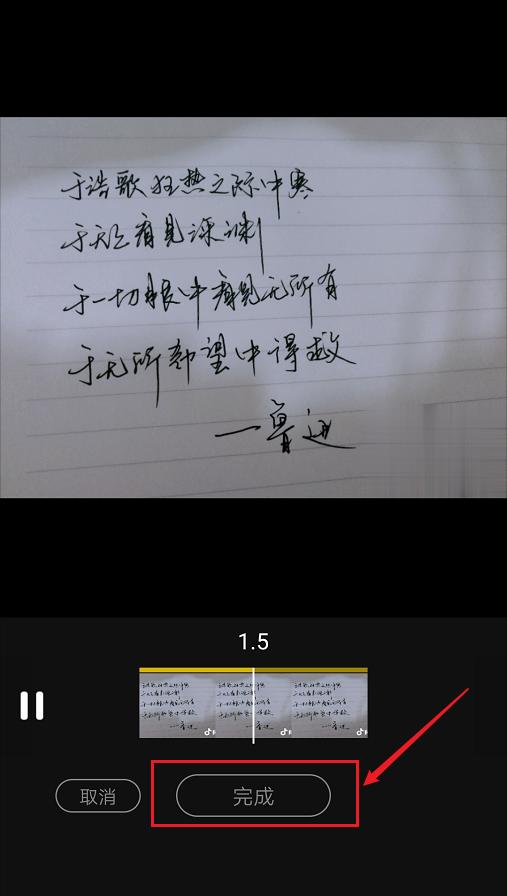 于浩歌狂热之际中寒
于天上看见深渊
于一切眼中看见无所有
于无所希望中得救
一鲁迅
1.5
取消
完成